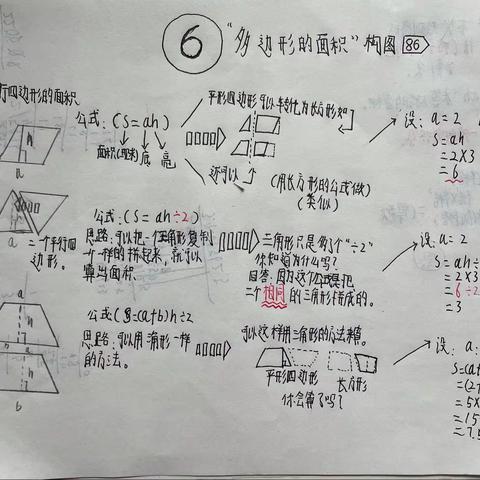 6 "多边形的面积"构图 86
行四边形的面积
公式:(S=ah)
面积(用S) 底 高
h
a
平行四边形可以转化为长方形如
还可以
(用长方形的公式做)
(类似)
设:a=2
S=ah
=2×3
=6
h
a
二个平行四
边形。
公式:(S=ah÷2)
思路:可以把一个三角形复制
一样的拼起来,就可以
算出面积.
三角形只是多了个"÷2"
你知道为什么吗?
回答:因为这个公式是把
二个相同的三角形拼成的。
设:a=2
S=ah÷
=2×3
=6÷2
=3
a
h
h
b
公式(S=(a+b)h÷2
思路:可以用三角形一样
的方法。
可以这样用三角形的方法来算.
平行四边形 长方形
你会算了吗?
设:a:
S=(a+
=(2+
=5×
=15
=7.5